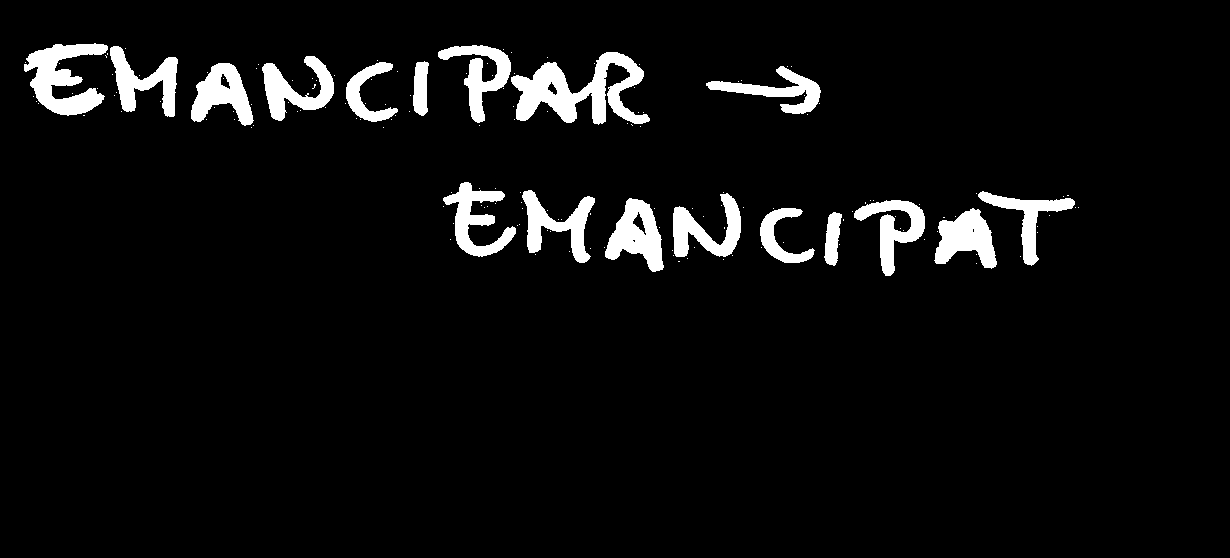 EMANCIPAR →
EMANCIPAT